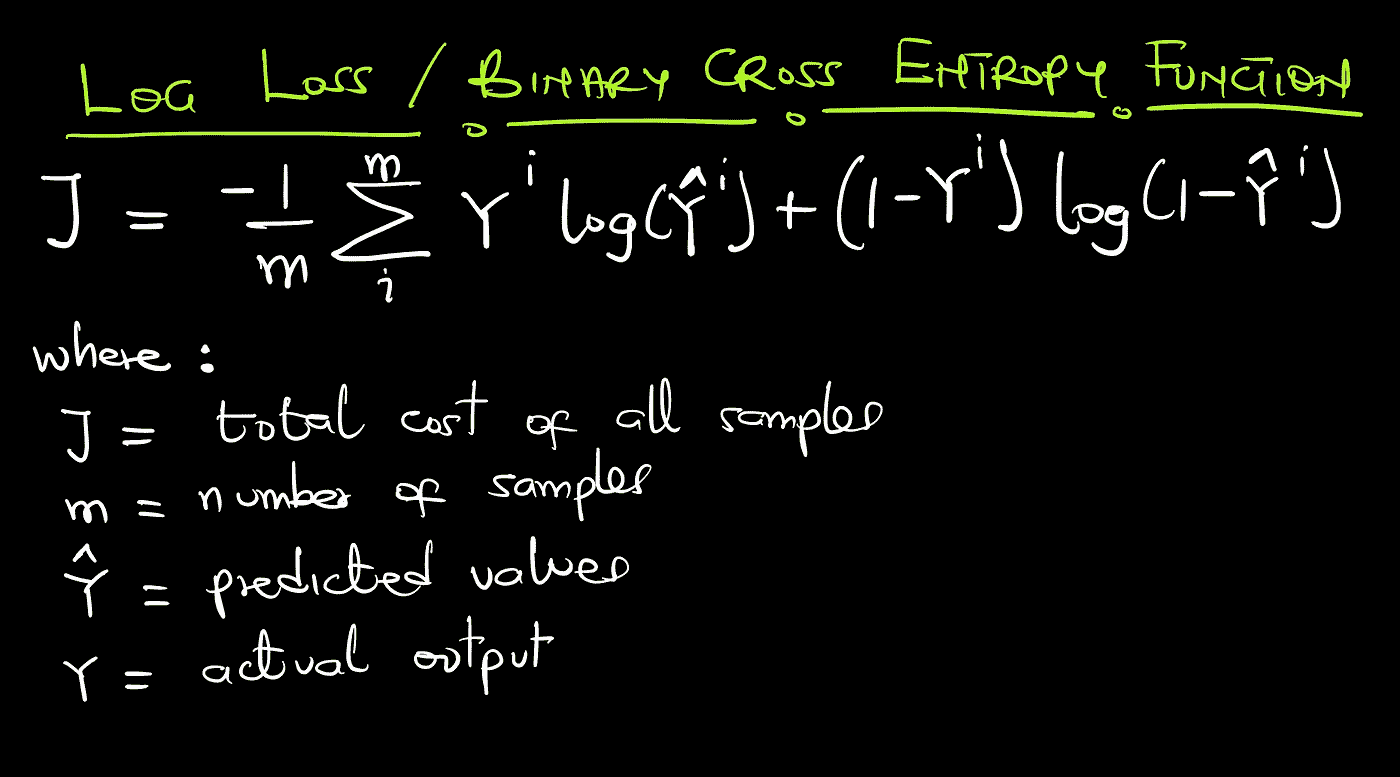 LOG LOSS / BINARY CROSS ENTROPY FUNCTION
J = -1/m ∑ᵢᵐ Yⁱ log(Ŷⁱ) + (1-Yⁱ) log(1-Ŷⁱ)
where :
J = total cost of all samples
m = number of samples
Ŷ = predicted values
Y = actual output